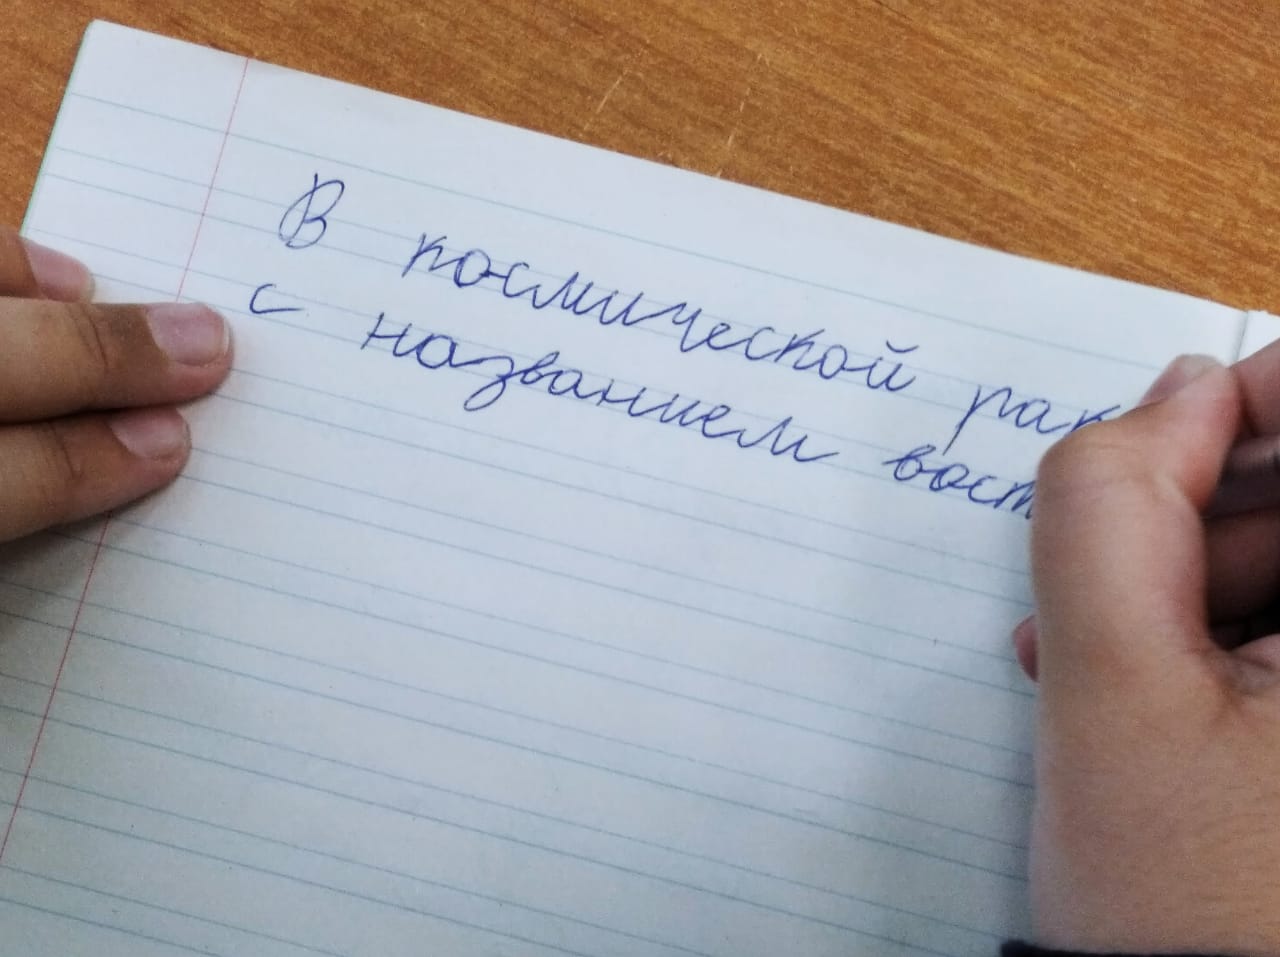 В космической рак
с названием вост